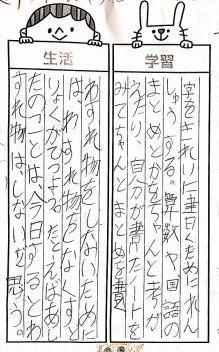 学習
字をきれいに書くために、れん
しゅうする。算数や国語の
まとめとかをちゃんと考が
えたり、自分が書いたノートを
みてちゃんとまとめを書
生活
わすれ物をしないために
は、わすれ物をなくすど
りょくがてつよう。たとえばあし
たのことは、今日するとわ
すれ物は、しないと思う。